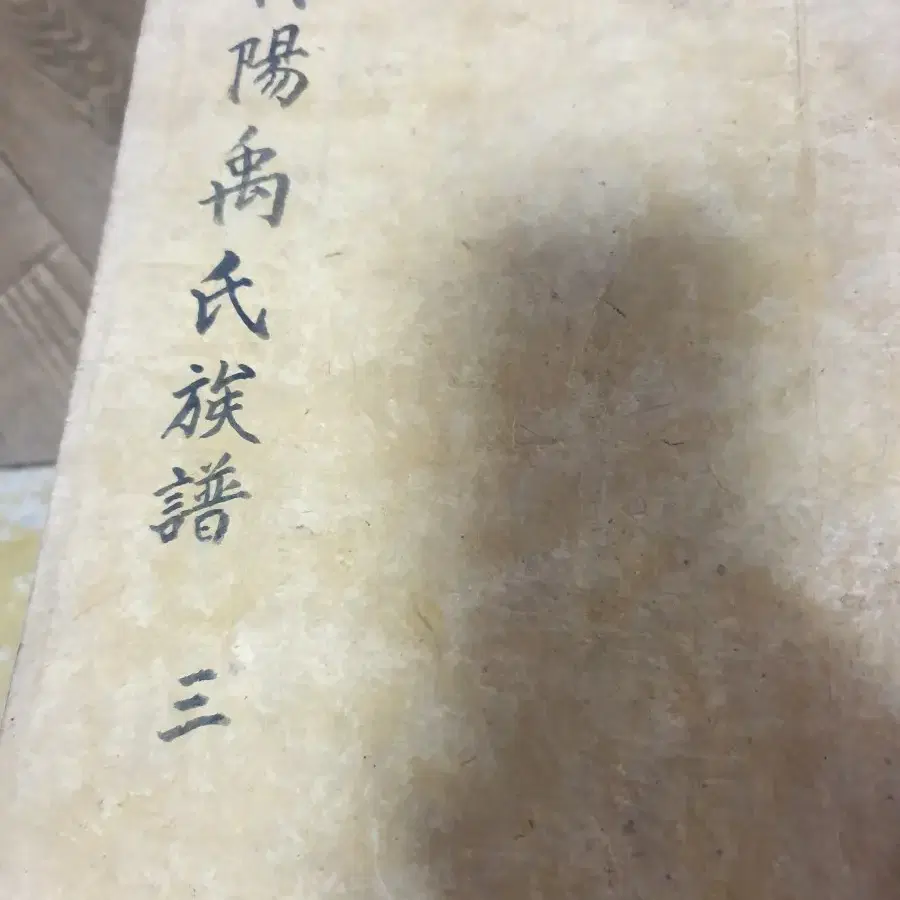 陽禹氏族譜 三